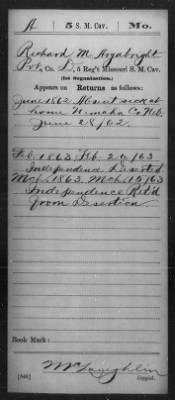 A 5 S. M. Cav. Mo.
Richard M Argabright
Pvt, Co. D, 5 Reg't Missouri S. M. Cav.
(See Organization.)
Appears on Returns as follows:
June 1862. Absent sick at
home Nemaha Co Neb.
June 28/62.
Feb. 1863. Feb. 26/63
Independence Deserted
Mch. 1863. Mch. 15/63
Independence Ret'd
from Desertion
Book Mark:
McLaughlin
(546) Copyist.